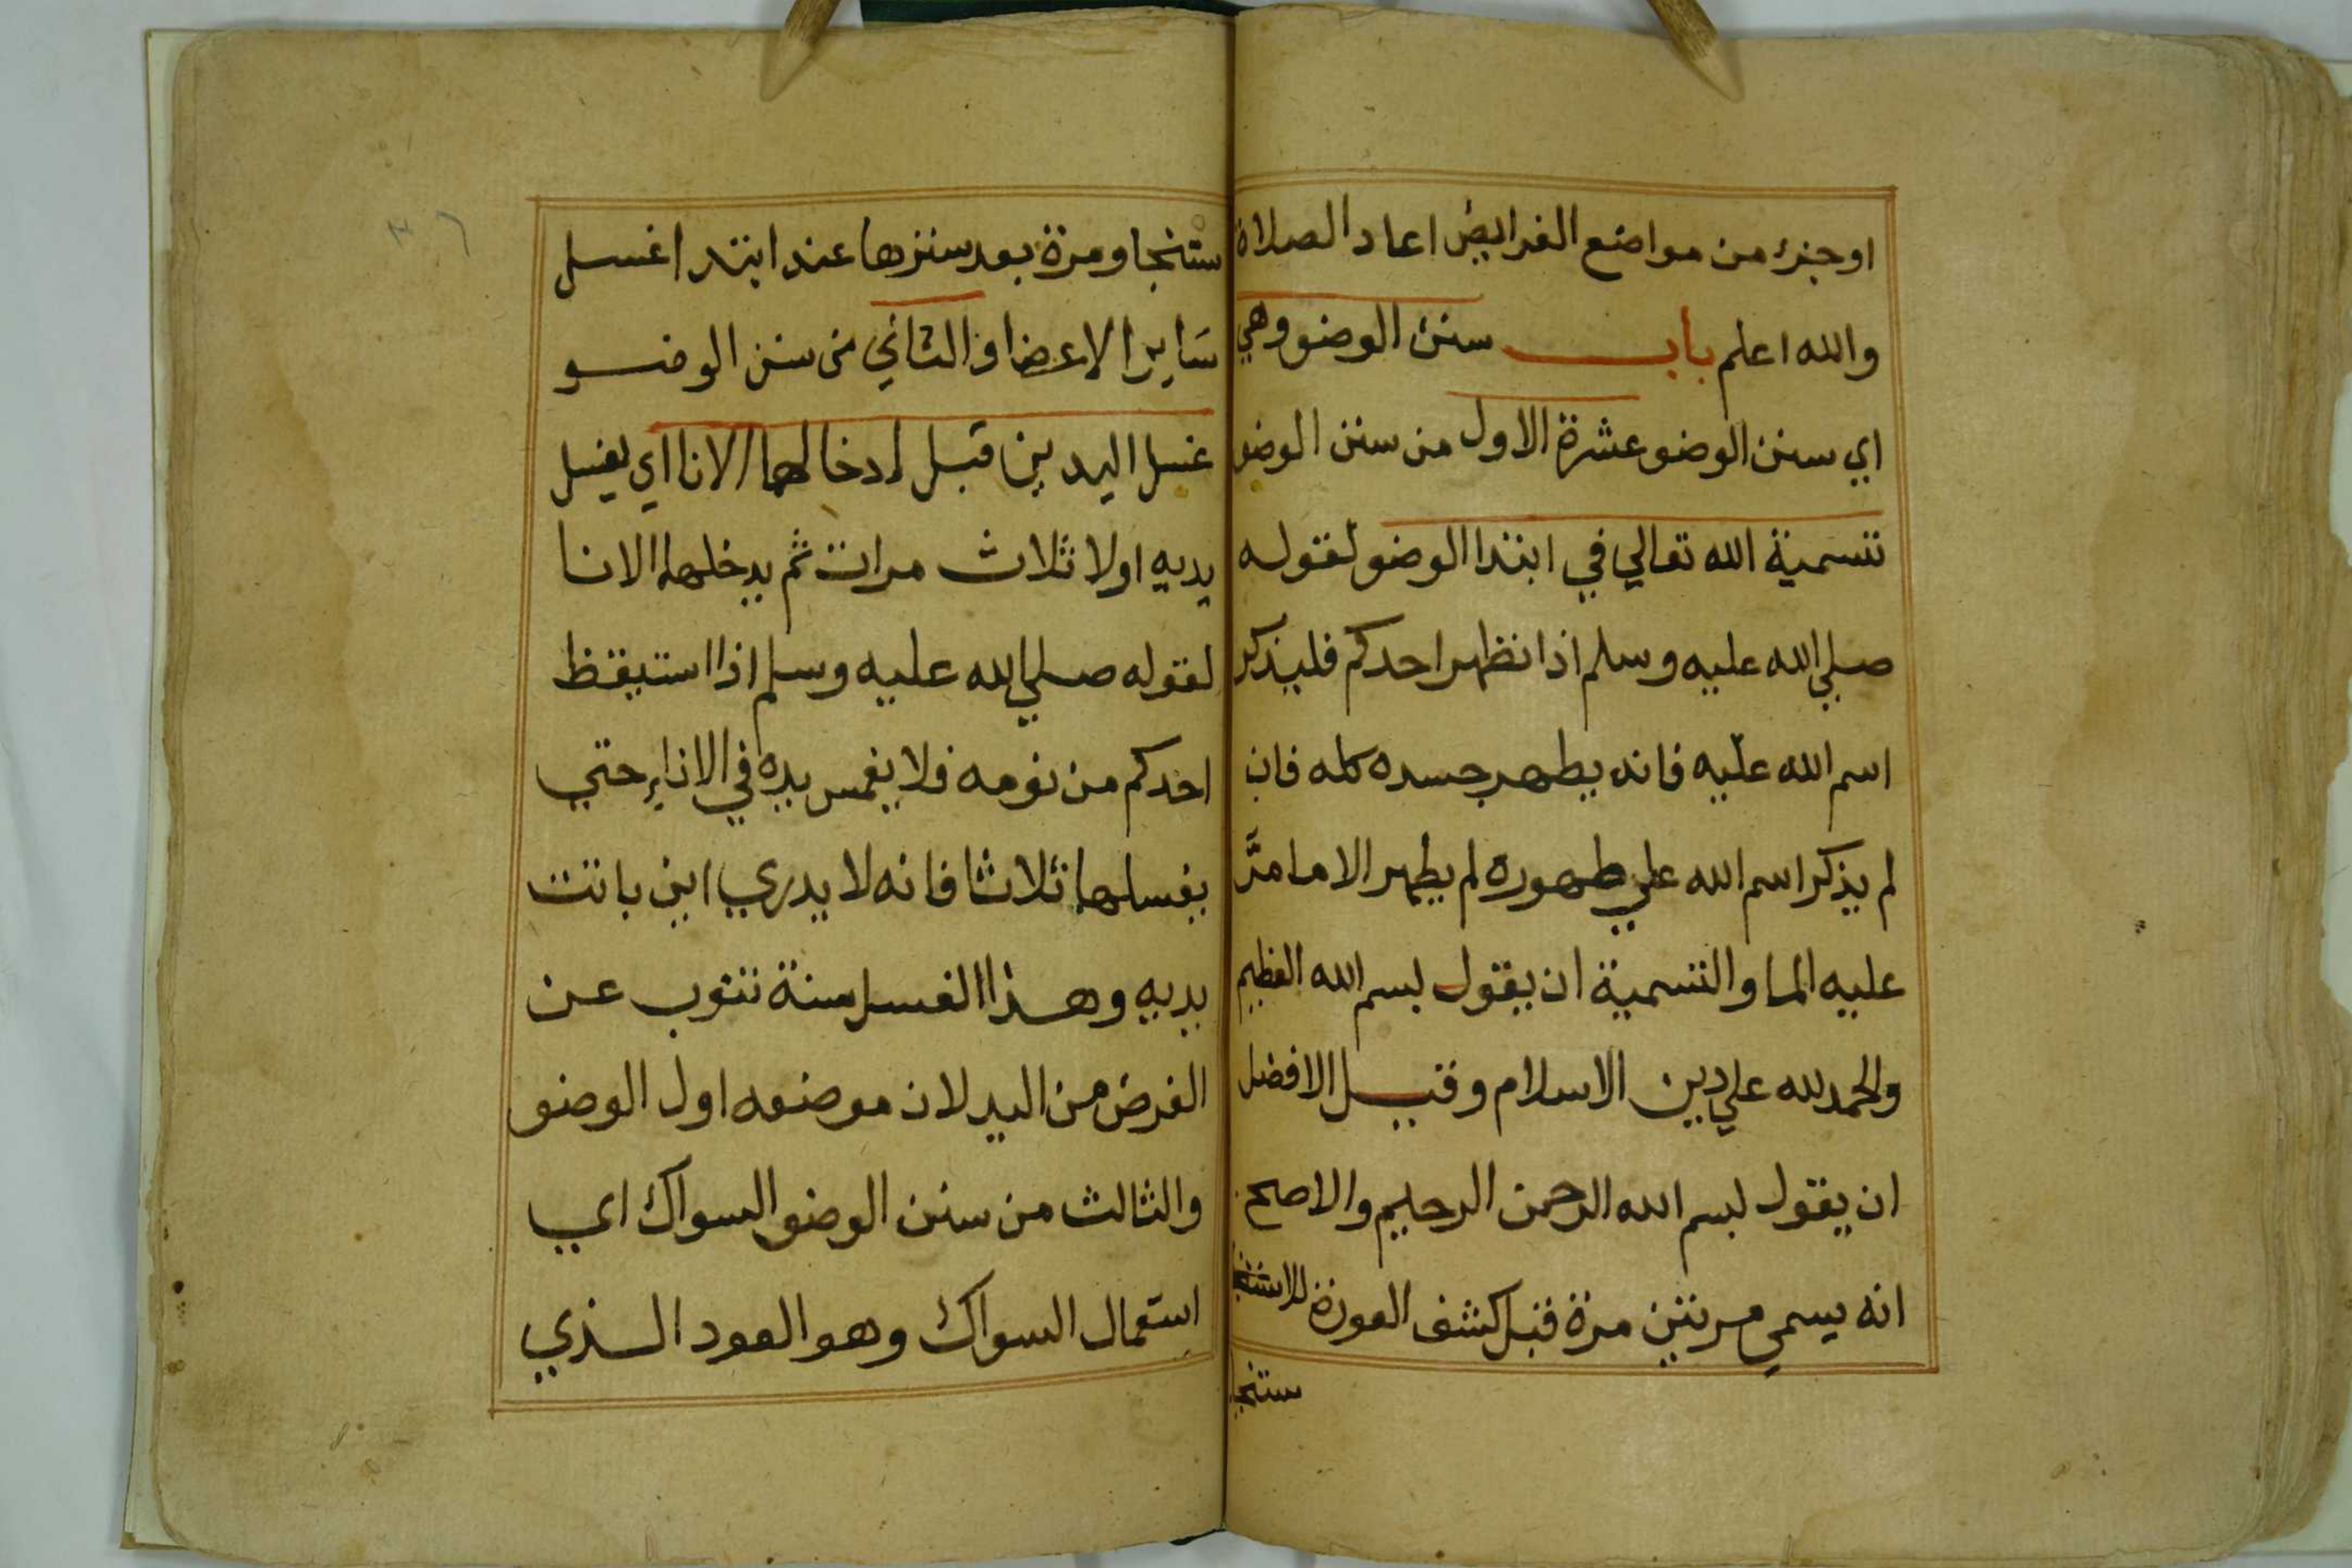 اوجزء من مواضع الفرايض اعاد الصلاة
والله اعلم باب سنن الوضو وهي
اي سنن الوضو عشرة الاول من سنن الوضو
تسمية الله تعالي في ابتدا الوضو لقوله
صلي الله عليه وسلم اذا تطهر احدكم فليذكر
اسم الله عليه فانه يطهر جسده كله فان
لم يذكر اسم الله علي طهوره لم يطهر الا ما مرّ
عليه الما والتسمية ان يقول بسم الله العظيم
والحمد لله علي دين الاسلام وقيل الافضل
ان يقول بسم الله الرحمن الرحيم والاصح
انه يسمي مرتين مرة قبل كشف العورة للاستنجا
ستنجا
ستنجا ومرة بعد سترها عند ابتدا غسل
ساير الاعضا والثاني من سنن الوضو
غسل اليدين قبل ادخالهما الانا اي يغسل
يديه اولا ثلاث مرات ثم يدخلهما الانا
لقوله صلي الله عليه وسلم اذا استيقظ
احدكم من نومه فلا يغمس يده في الاناءِ حتي
يغسلها ثلاثا فانه لا يدري اين باتت
يديه وهذا الغسل سنة تنوب عن
الفرض من اليد لان موضعه اول الوضو
والثالث من سنن الوضو السواك اي
استعمال السواك وهو العود الذي